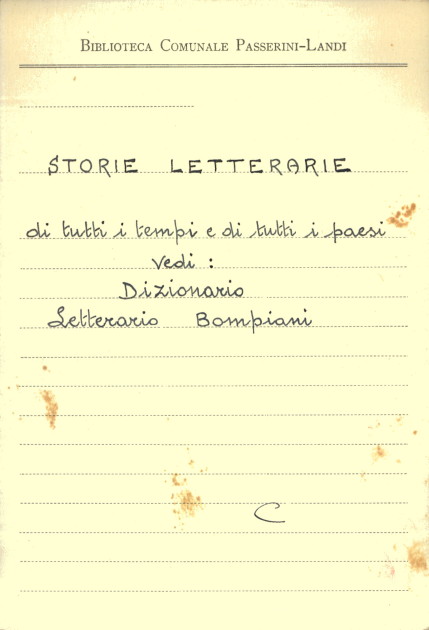 BIBLIOTECA COMUNALE PASSERINI-LANDI
STORIE LETTERARIE
di tutti i tempi e di tutti i paesi
Vedi :
Dizionario
Letterario Bompiani
C